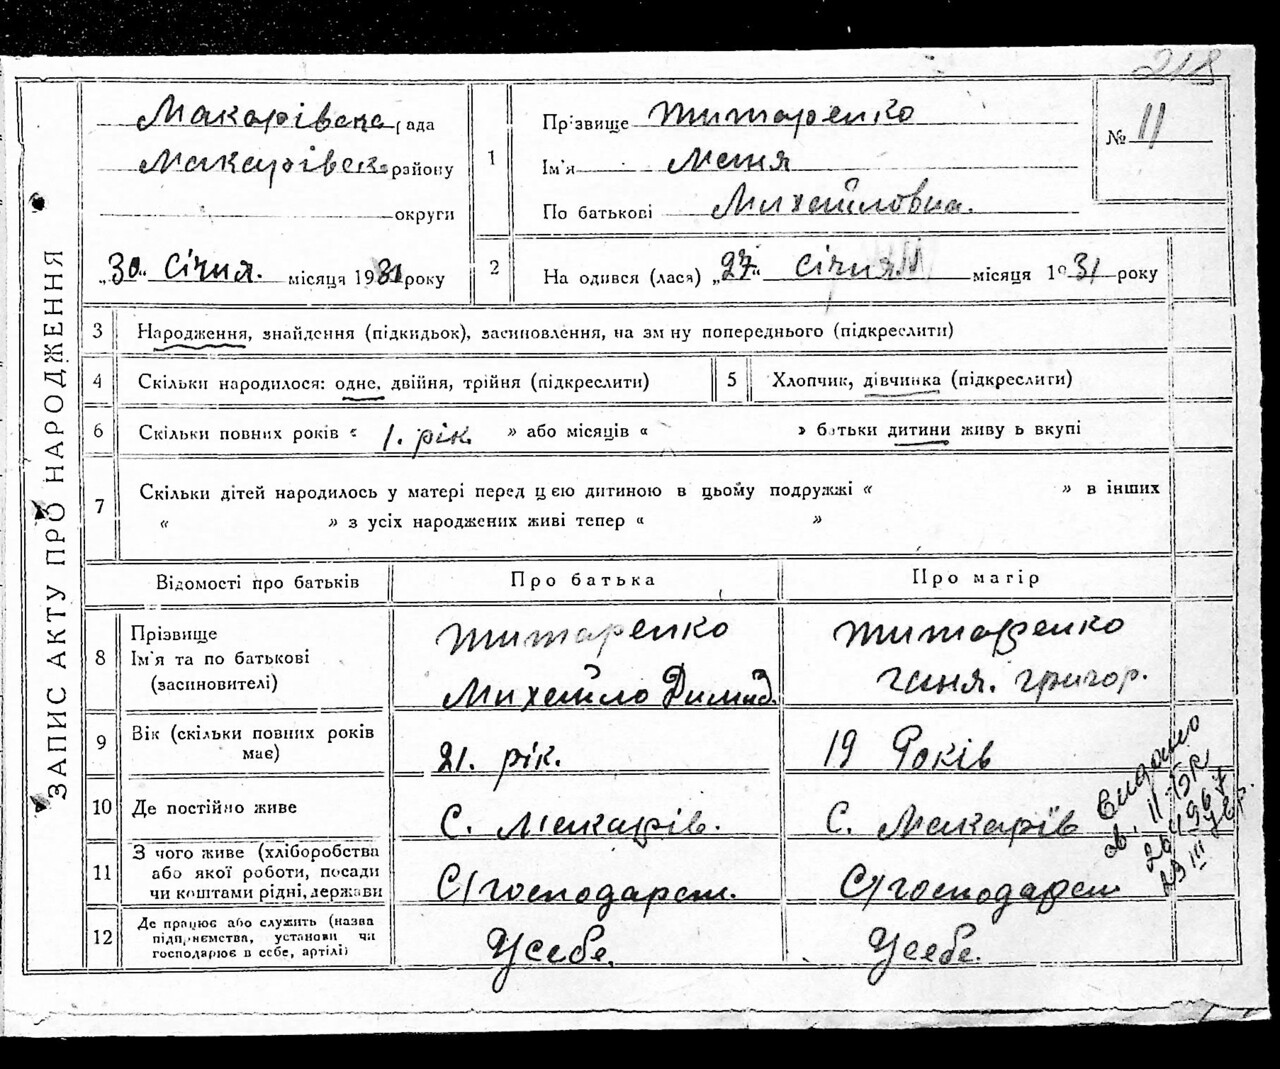 218
ЗАПИС АКТУ ПРО НАРОДЖЕННЯ
Макарівська рада
Макарівськ району
округи
„30“ Січня. місяця 1931 року
1
Прізвище Титаренко
Ім'я Маня
По батькові Михайловна.
№ 11
2
На одився (лася) „27“ січня місяця 1931 року
3 Народження, знайдення (підкидьок), засиновлення, на зм ну попереднього (підкреслити)
4 Скільки народилося: одне, двійня, трійня (підкреслити)
5 Хлопчик, дівчинка (підкреслиги)
6 Скільки повних років « 1. рік. » або місяців « » батьки дитини живу ь вкупі
7 Скільки дітей народилось у матері перед цією дитиною в цьому подружжі « » в інших
« » з усіх народжених живі тепер « »
Відомості про батьків
Про батька
Про магір
8 Прізвище
Ім'я та по батькові
(засиновителі)
Титаренко
Михайло Димид.
Титаренко
Ганя. Григор.
9 Вік (скільки повних років
має)
21. рік.
19 Років
10 Де постійно живе
С. Макарів.
С. Макарів
11 З чого живе (хліборобства
або якої роботи, посади
чи коштами рідні, держави
С/господарст.
С/господарст
12 Де працює або служить (назва
підприємства, установи чи
господарює в себе, артілі)
Усебе.
Усебе.
Видано
св. II-БК